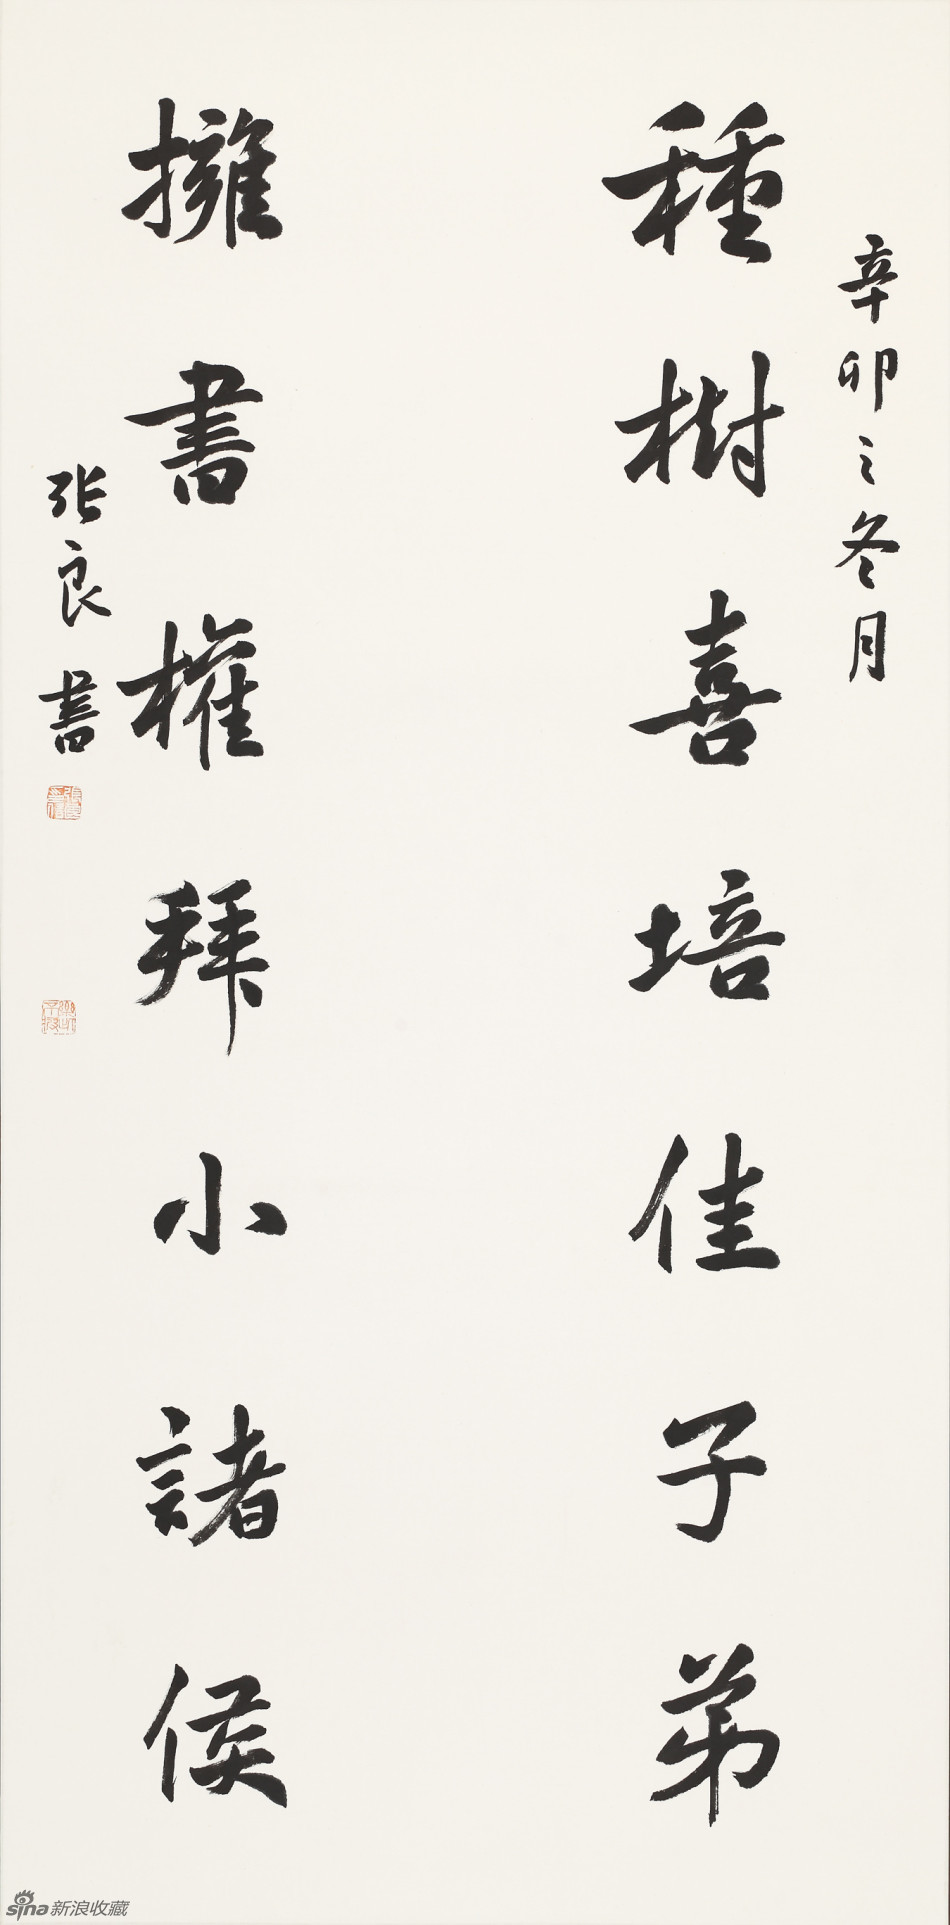 辛卯之冬月
種樹喜培佳子弟
擁書權拜小諸侯
张良書
sina新浪收藏